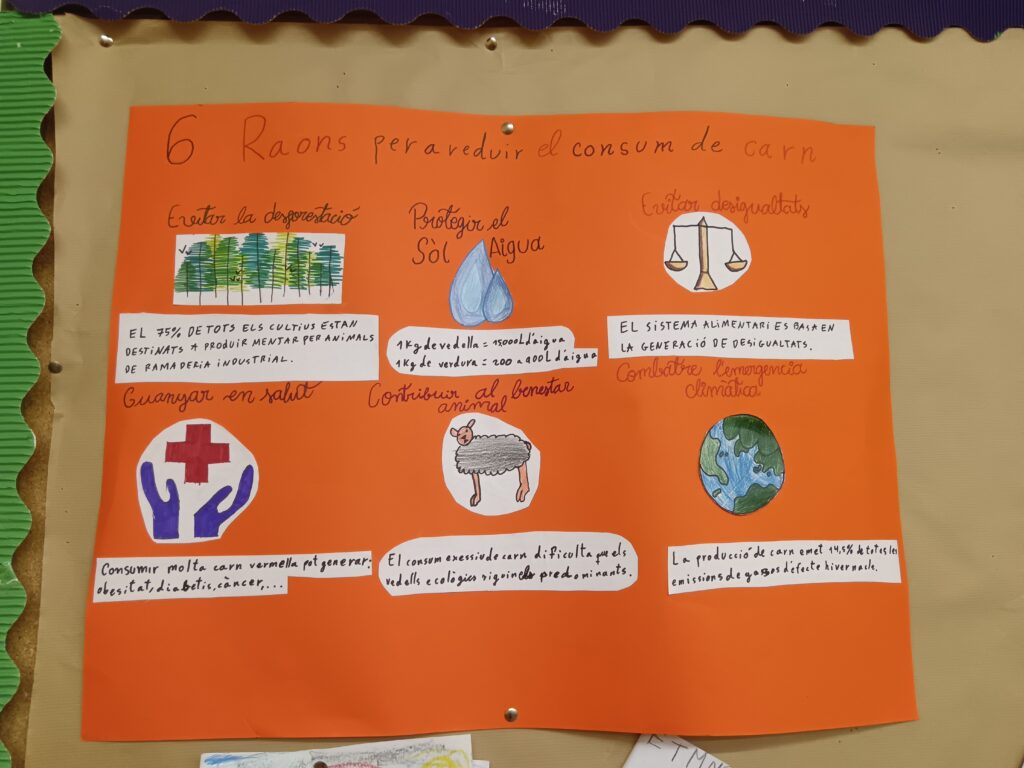 6 Raons per a reduir el consum de carn
Evitar la desforestació
EL 75% DE TOTS ELS CULTIUS ESTAN
DESTINATS A PRODUIR MENTAR PER ANIMALS
DE RAMADERIA INDUSTRIAL.
Protegir el
Sòl Aigua
1 Kg de vedella = 15,000L d'aigua
1 Kg de verdura = 200 a 400L d'aigua
Evitar desigualtats
EL SISTEMA ALIMENTARI ES BASA EN
LA GENERACIÓ DE DESIGUALTATS.
Guanyar en salut
Consumir molta carn vermella pot generar:
obesitat, diabetis, càncer,...
Contribuir al benestar
animal
El consum exessiu de carn dificulta que els
vedells ecològics siguin els predominants.
Combatre l'emergència
climàtica
La producció de carn emet 14,5% de totes les
emissions de gasos d'éfecte hivernacle.